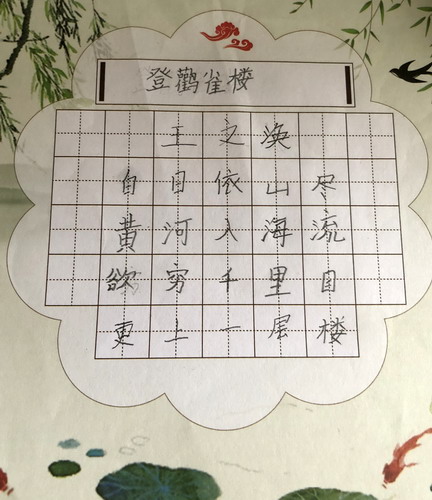 登鸛雀楼
王之涣
自目依山尽
黃河入海流
欲穷千里目
更上一层楼